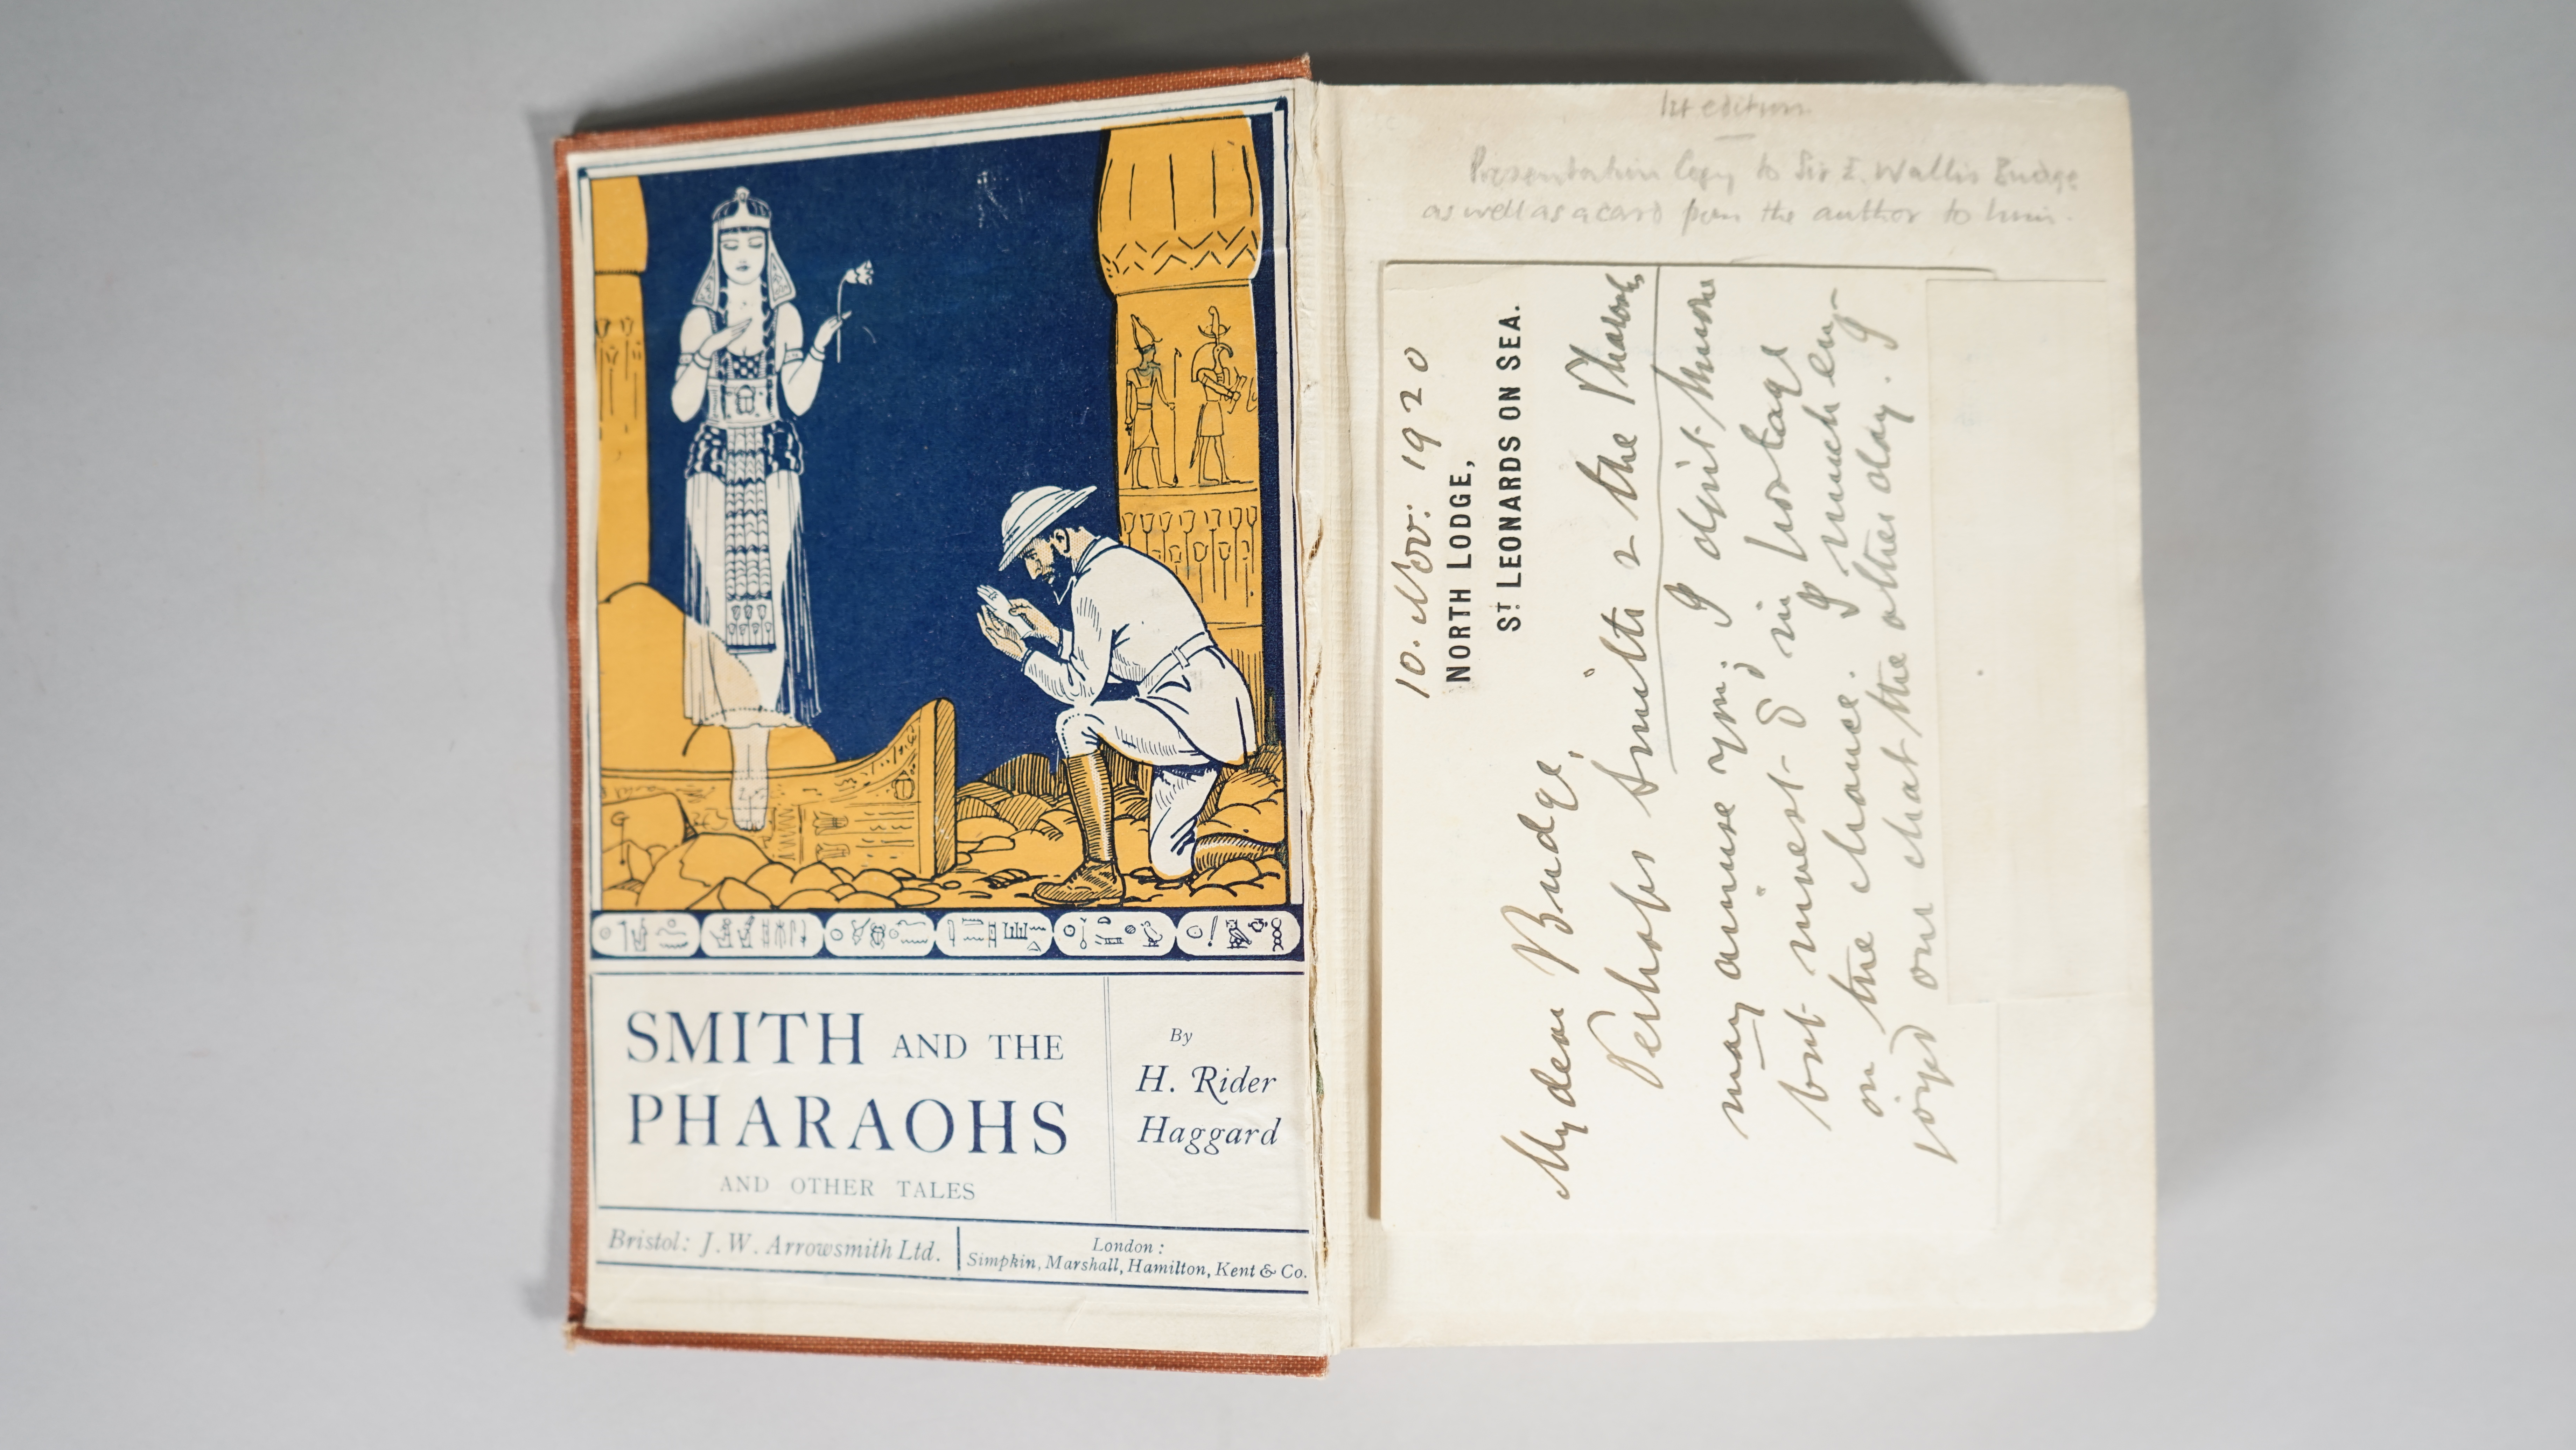 SMITH AND THE
PHARAOHS
AND OTHER TALES
By
H. Rider
Haggard
Bristol: J. W. Arrowsmith Ltd.
London:
Simpkin, Marshall, Hamilton, Kent & Co.
1st edition
Presentation Copy to Sir E. Wallis Budge
as well as a card from the author to him.
10. Nov: 1920
NORTH LODGE,
ST LEONARDS ON SEA.
My dear Budge,
Perhaps Smith & the Pharaohs
may amuse you. I
but in
on the chance. I much en-
joyed our chat the other day. I